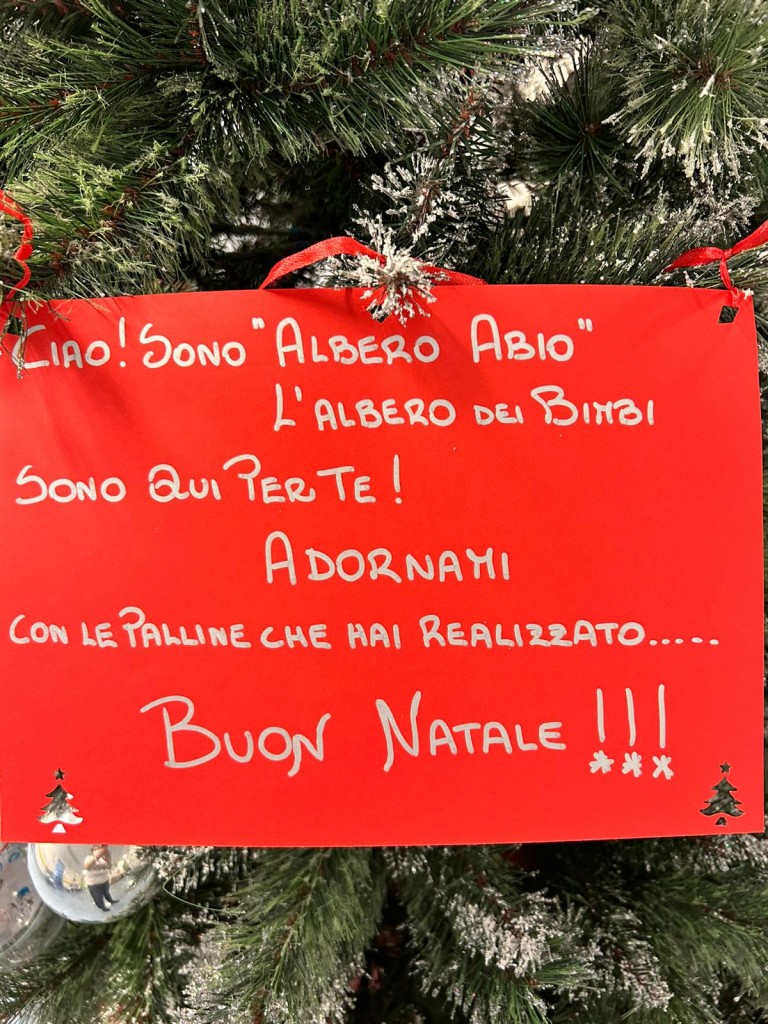 Ciao! Sono "Albero Abio"
L'albero dei Bimbi
Sono qui per te!
Adornami
con le palline che hai realizzato.....
Buon Natale !!!